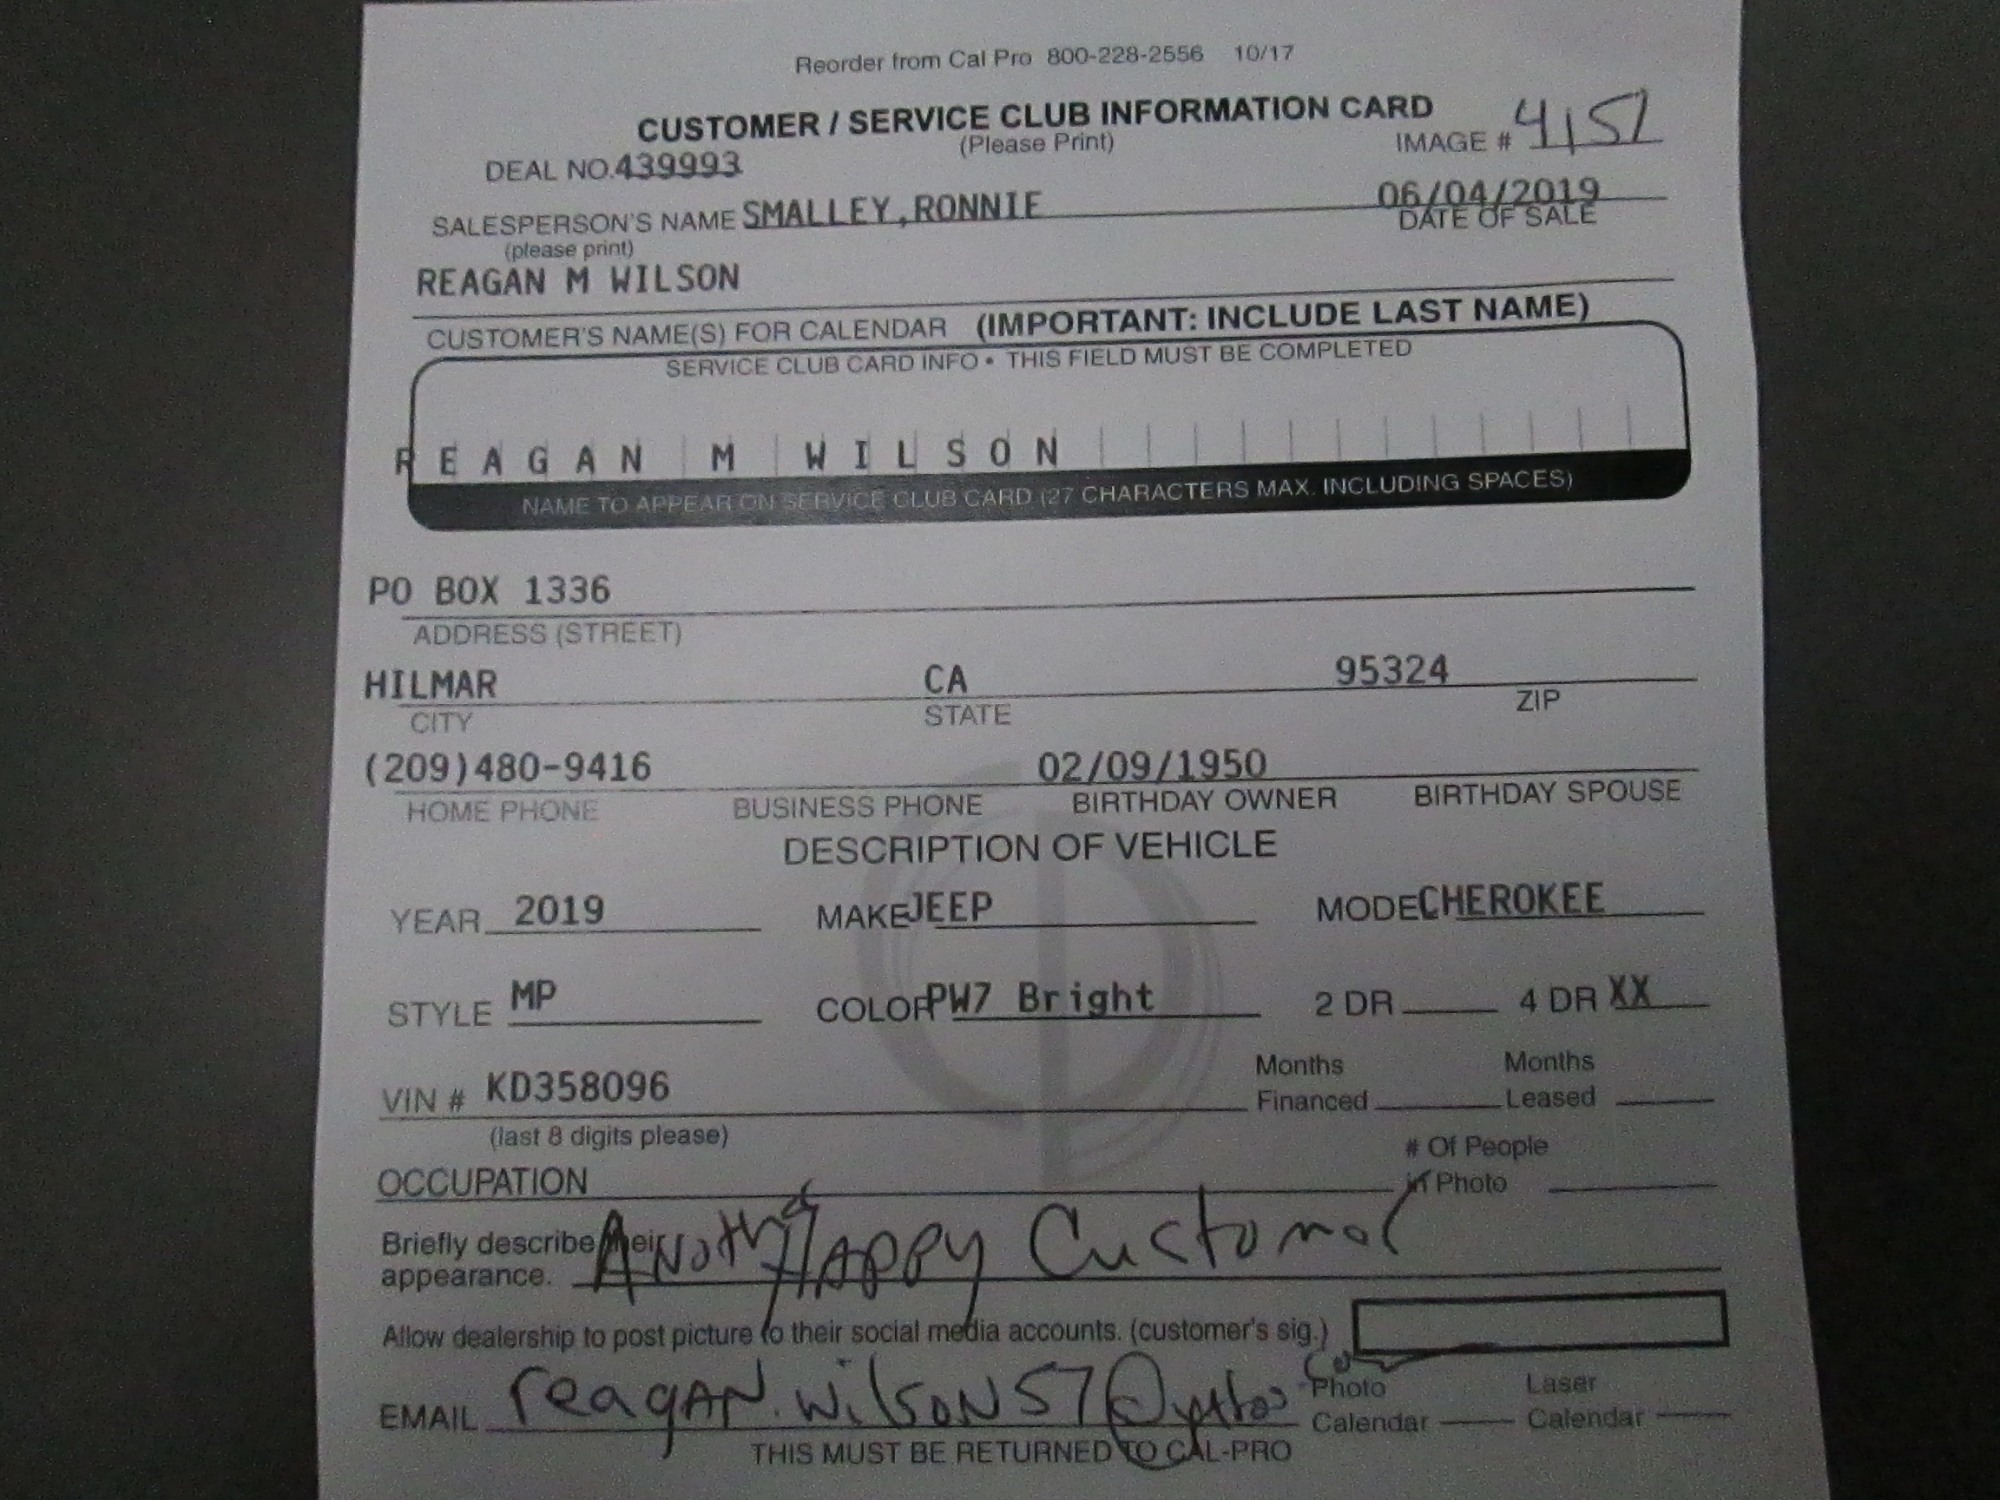 Reorder from Cal Pro 800-228-2556 10/17
CUSTOMER / SERVICE CLUB INFORMATION CARD
(Please Print)
IMAGE # 4152
DEAL NO. 439993
SALESPERSON'S NAME SMALLEY, RONNIE 06/04/2019
(please print) DATE OF SALE
REAGAN M WILSON
CUSTOMER'S NAME(S) FOR CALENDAR (IMPORTANT: INCLUDE LAST NAME)
SERVICE CLUB CARD INFO • THIS FIELD MUST BE COMPLETED
REAGAN M WILSON
NAME TO APPEAR ON SERVICE CLUB CARD (27 CHARACTERS MAX. INCLUDING SPACES)
PO BOX 1336
ADDRESS (STREET)
HILMAR CA 95324
CITY STATE ZIP
(209)480-9416 02/09/1950
HOME PHONE BUSINESS PHONE BIRTHDAY OWNER BIRTHDAY SPOUSE
DESCRIPTION OF VEHICLE
YEAR 2019 MAKE JEEP MODEL CHEROKEE
STYLE MP COLOR PW7 Bright 2 DR 4 DR XX
Months Months
VIN # KD358096 Financed Leased
(last 8 digits please)
# Of People
OCCUPATION in Photo
Briefly describe their Another HAPPY Customer
appearance.
Allow dealership to post picture to their social media accounts. (customer's sig.)
EMAIL reagan.wilson57@yahoo.com Photo Laser
Calendar Calendar
THIS MUST BE RETURNED TO CAL-PRO